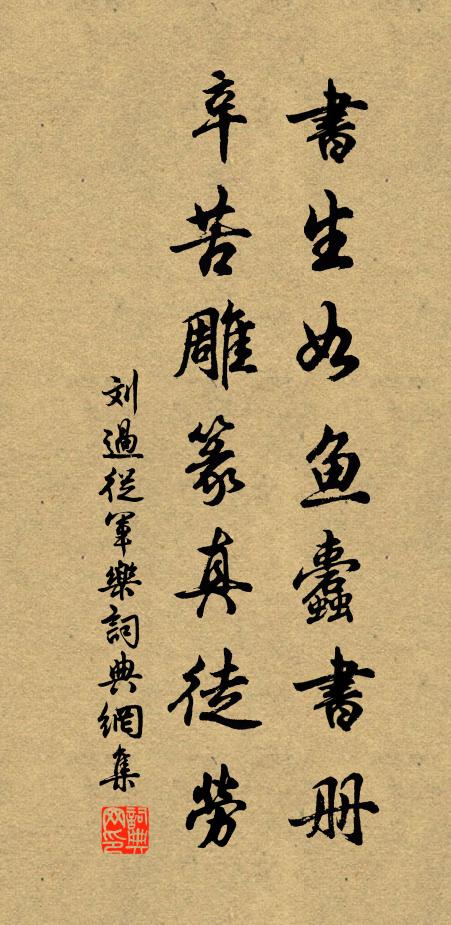 書生如魚蠹書册
辛苦雕篆真徒勞
刘過從軍樂詞典網集
詞典網印